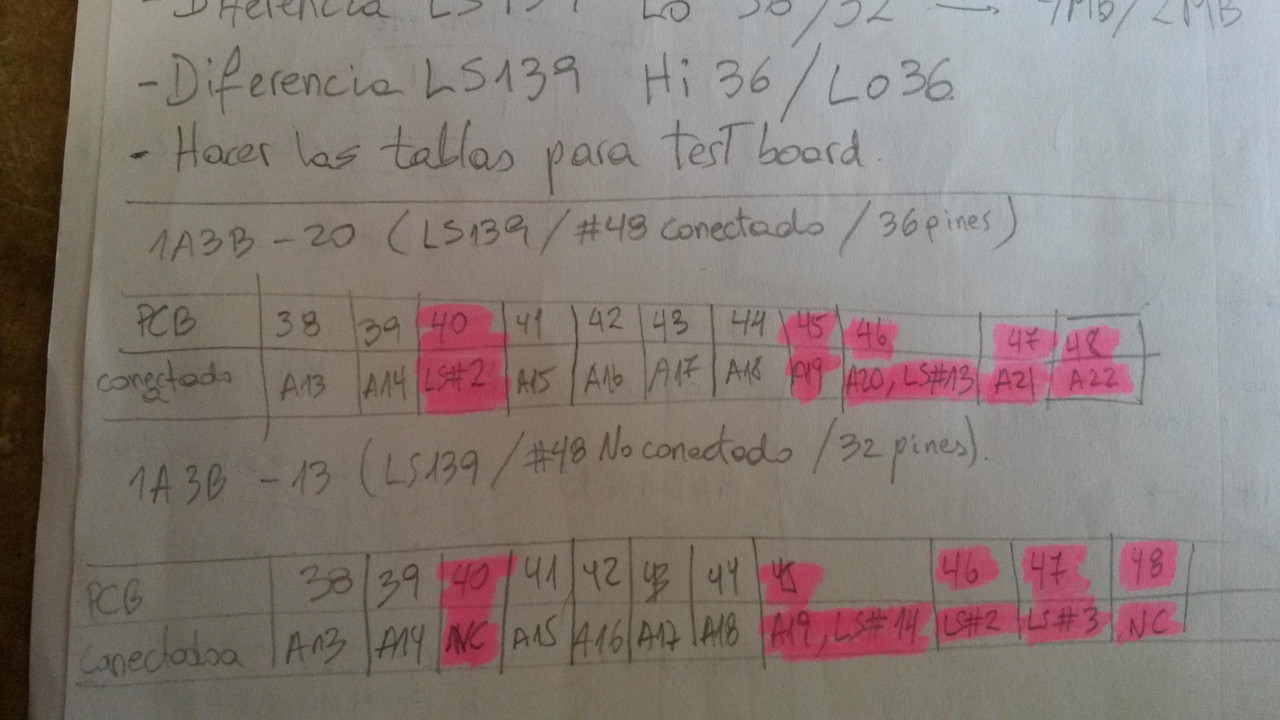 - Diferencia LS139 Lo 36/32 → 4MB/2MB
- Diferencia LS139 Hi 36/Lo36
- Hacer las tablas para test board.
1A3B - 20 (LS139 / #48 conectado / 36 pines)
PCB 38 39 40 41 42 43 44 45 46 47 48
conectado a A13 A14 LS#2 A15 A16 A17 A18 A19 A20, LS#13 A21 A22
1A3B - 13 (LS139 / #48 No conectado / 32 pines).
PCB 38 39 40 41 42 43 44 45 46 47 48
Conectado a A13 A14 NC A15 A16 A17 A18 A19, LS#14 LS#2 LS#3 NC